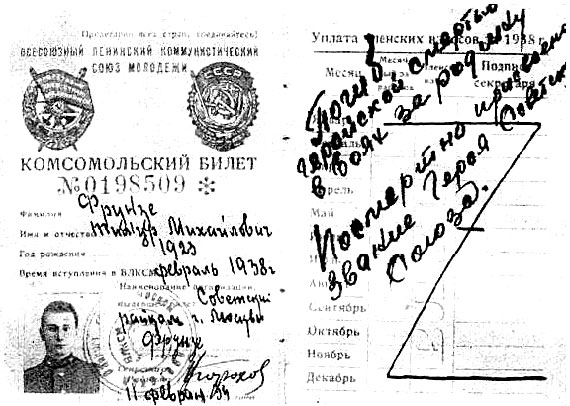 Пролетарии всех стран, соединяйтесь!
ВСЕСОЮЗНЫЙ ЛЕНИНСКИЙ КОММУНИСТИЧЕСКИЙ
СОЮЗ МОЛОДЕЖИ
СССР
КОМСОМОЛЬСКИЙ БИЛЕТ
№ 0198509 *
Фамилия Фрунзе
Имя и отчество Тимур Михайлович
Год рождения 1923
Время вступления в ВЛКСМ февраль 1938г
Наименование организации,
выдавшей Советский
райком г. Москвы
Фрунзе
11 феврал
Уплата членских взносов за 1938 г.
Месяц
Подпись
секретаря
Апрель
Май
Сентябрь
Октябрь
Ноябрь
Декабрь
Погиб
геройской смертью
в боях за родину
Посмертно присвоено
звание Героя Советск
Союза.